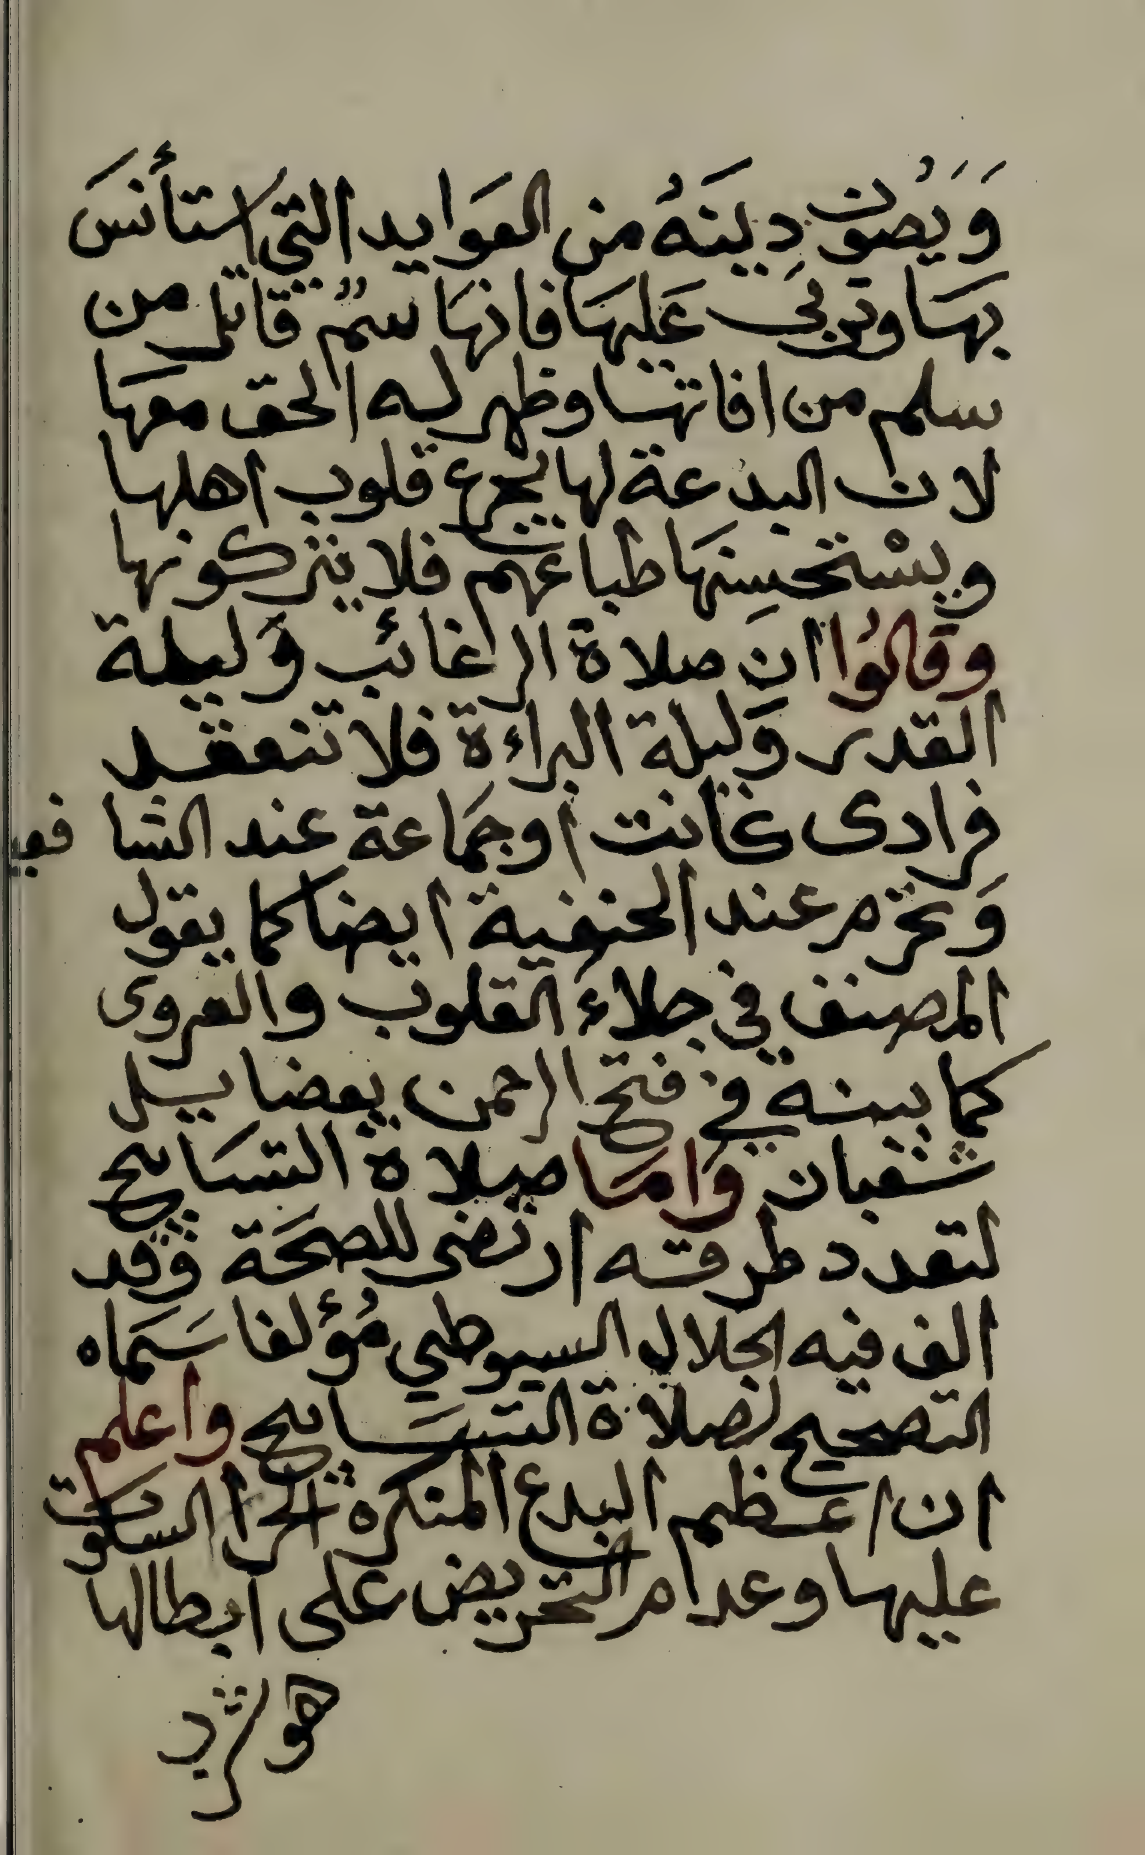 وَيَصُون دِينَهُ من العَوايد التي استأنسَ
بهَا وتربى عَليهَا فانهَا سمٌّ قاتل من
سلم من افاتها وظهر له الحق معها
لان البدعة لها يجرع قلوب اهلها
ويسْتحسِنهَا طباعهم فلا يتركونها
وقالوُا انَ صلاة الرغائب وَليلة
القدر وَليلة البراءة فلا تنعقد
فرادى كانت اوجمَاعة عند الشافعيـ
وَتحرم عند الحنفية ايضا كما يقول
المصنف في جلاءُ القلوب والهروى
كما بينه في فتح الرحمن بعضايـل
شعبان وَامَا صلاة التسَابيح
لتعدد طرقه ارتضى للصحَة وَقد
الف فيه الجلال السيوطي مُؤلفا سَمَاه
التصحيح لصلاة التسَابيح واعلم
ان اعظم البدع المنكرة السكوت
عليها وعدم التحريض على ابطالها
هو